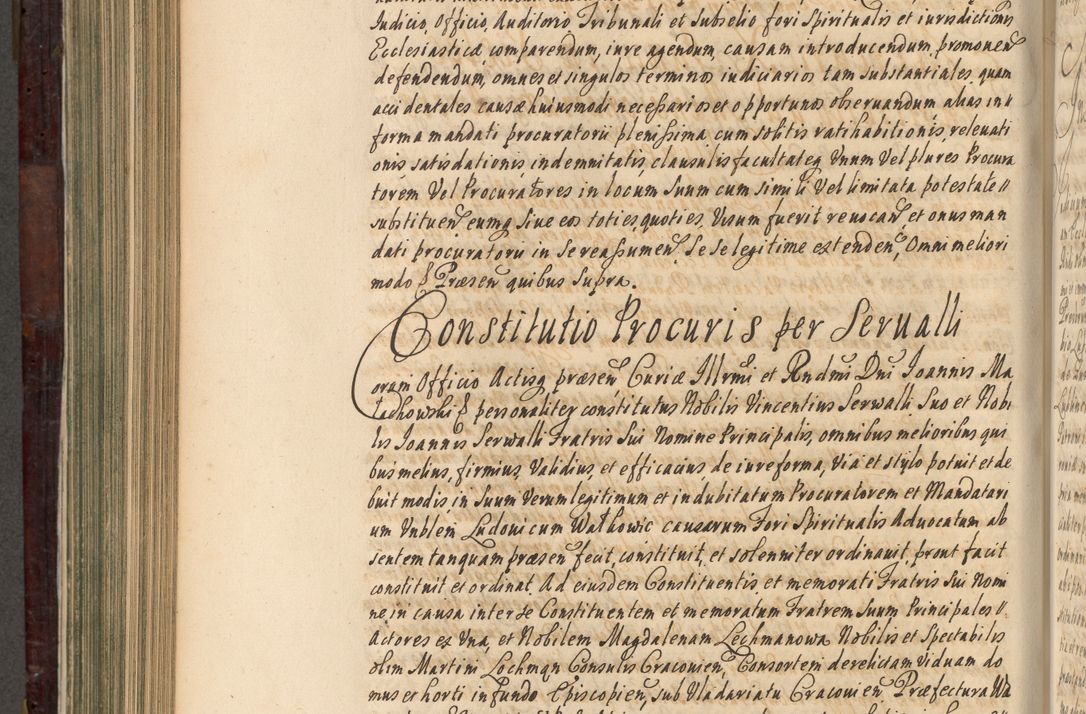 Iudicio, Officio, Auditorio Tribunali et Subselio fori Spiritualis et iurisdictionis
Ecclesiasticæ comparendum, iure agendum, causam introducendum, promouen
defendendum, omnes et singulos terminos iudiciarios tam substantiales quam
accidentales causæ huiusmodi necessarios et opportunos obseruandum alias in
forma mandati procuratorii plenissima cum solitis ratihabitionis, releuati
onis satisdationis, indemnitatis, clausulis facultateq Vnum Vel plures Procura
torem Vel Procuratores in locum Suum cum simili Vel limitata potestate
substituen eumq Siue eos toties quoties Visum fuerit reuocan et onus man
dati procuratorii in Se reassumen Se Se legitime extenden, Omni meliori
modo Præsen quibus Supra.
Constitutio Procuris per Serualli
Coram Officio Actisq præsen Curiæ Illrmi et Rndmi Dni Ioannis Ma
ładhowski personaliter constitutus Nobilis Vincentius Serwalli Suo et Nobi
lis Ioannis Serwalli Fratris Sui Nomine Principalis, omnibus melioribus qui
bus melius, firmius, Validius, et efficacius de iure forma, Via et stylo potuit et de
buit modis, in Suum Verum legitimum et indubitatum Procuratorem et Mandatari
um Vnblem Ludouicum Wałkowic causarum Fori Spiritualis Aduocatum ab
sentem tanquam præsen fecit, constituit, et solenniter ordinauit, prout facit
constituit et ordinat. Ad eiusdem Constituentis et memorati Fratris Sui Nomi
ne in causa inter Se Constituentem et memoratum Fratrem Suum Principales
Actores ex Vna, et Nobilem Magdalenam Lochmanowa Nobilis et Spectabilis
olim Martini Lochman Consulis Cracouien, Consortem derelictam Viduam do
mus et horti in fundo Episcopien, sub Vladariatu Cracouien Præfectura Wa